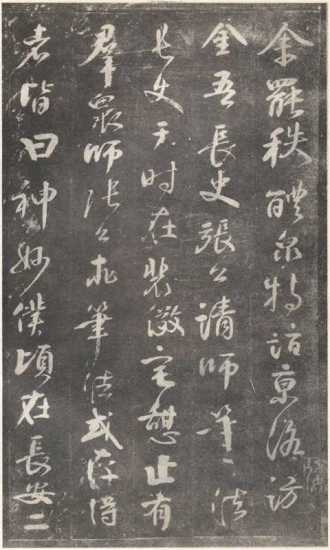 余罷秩醴泉特詣京洛訪
金吾長史張公請師筆法
長史于時在裴儆宅憇止有
羣眾師張公求筆法或存得
者皆曰神妙僕頃在長安二